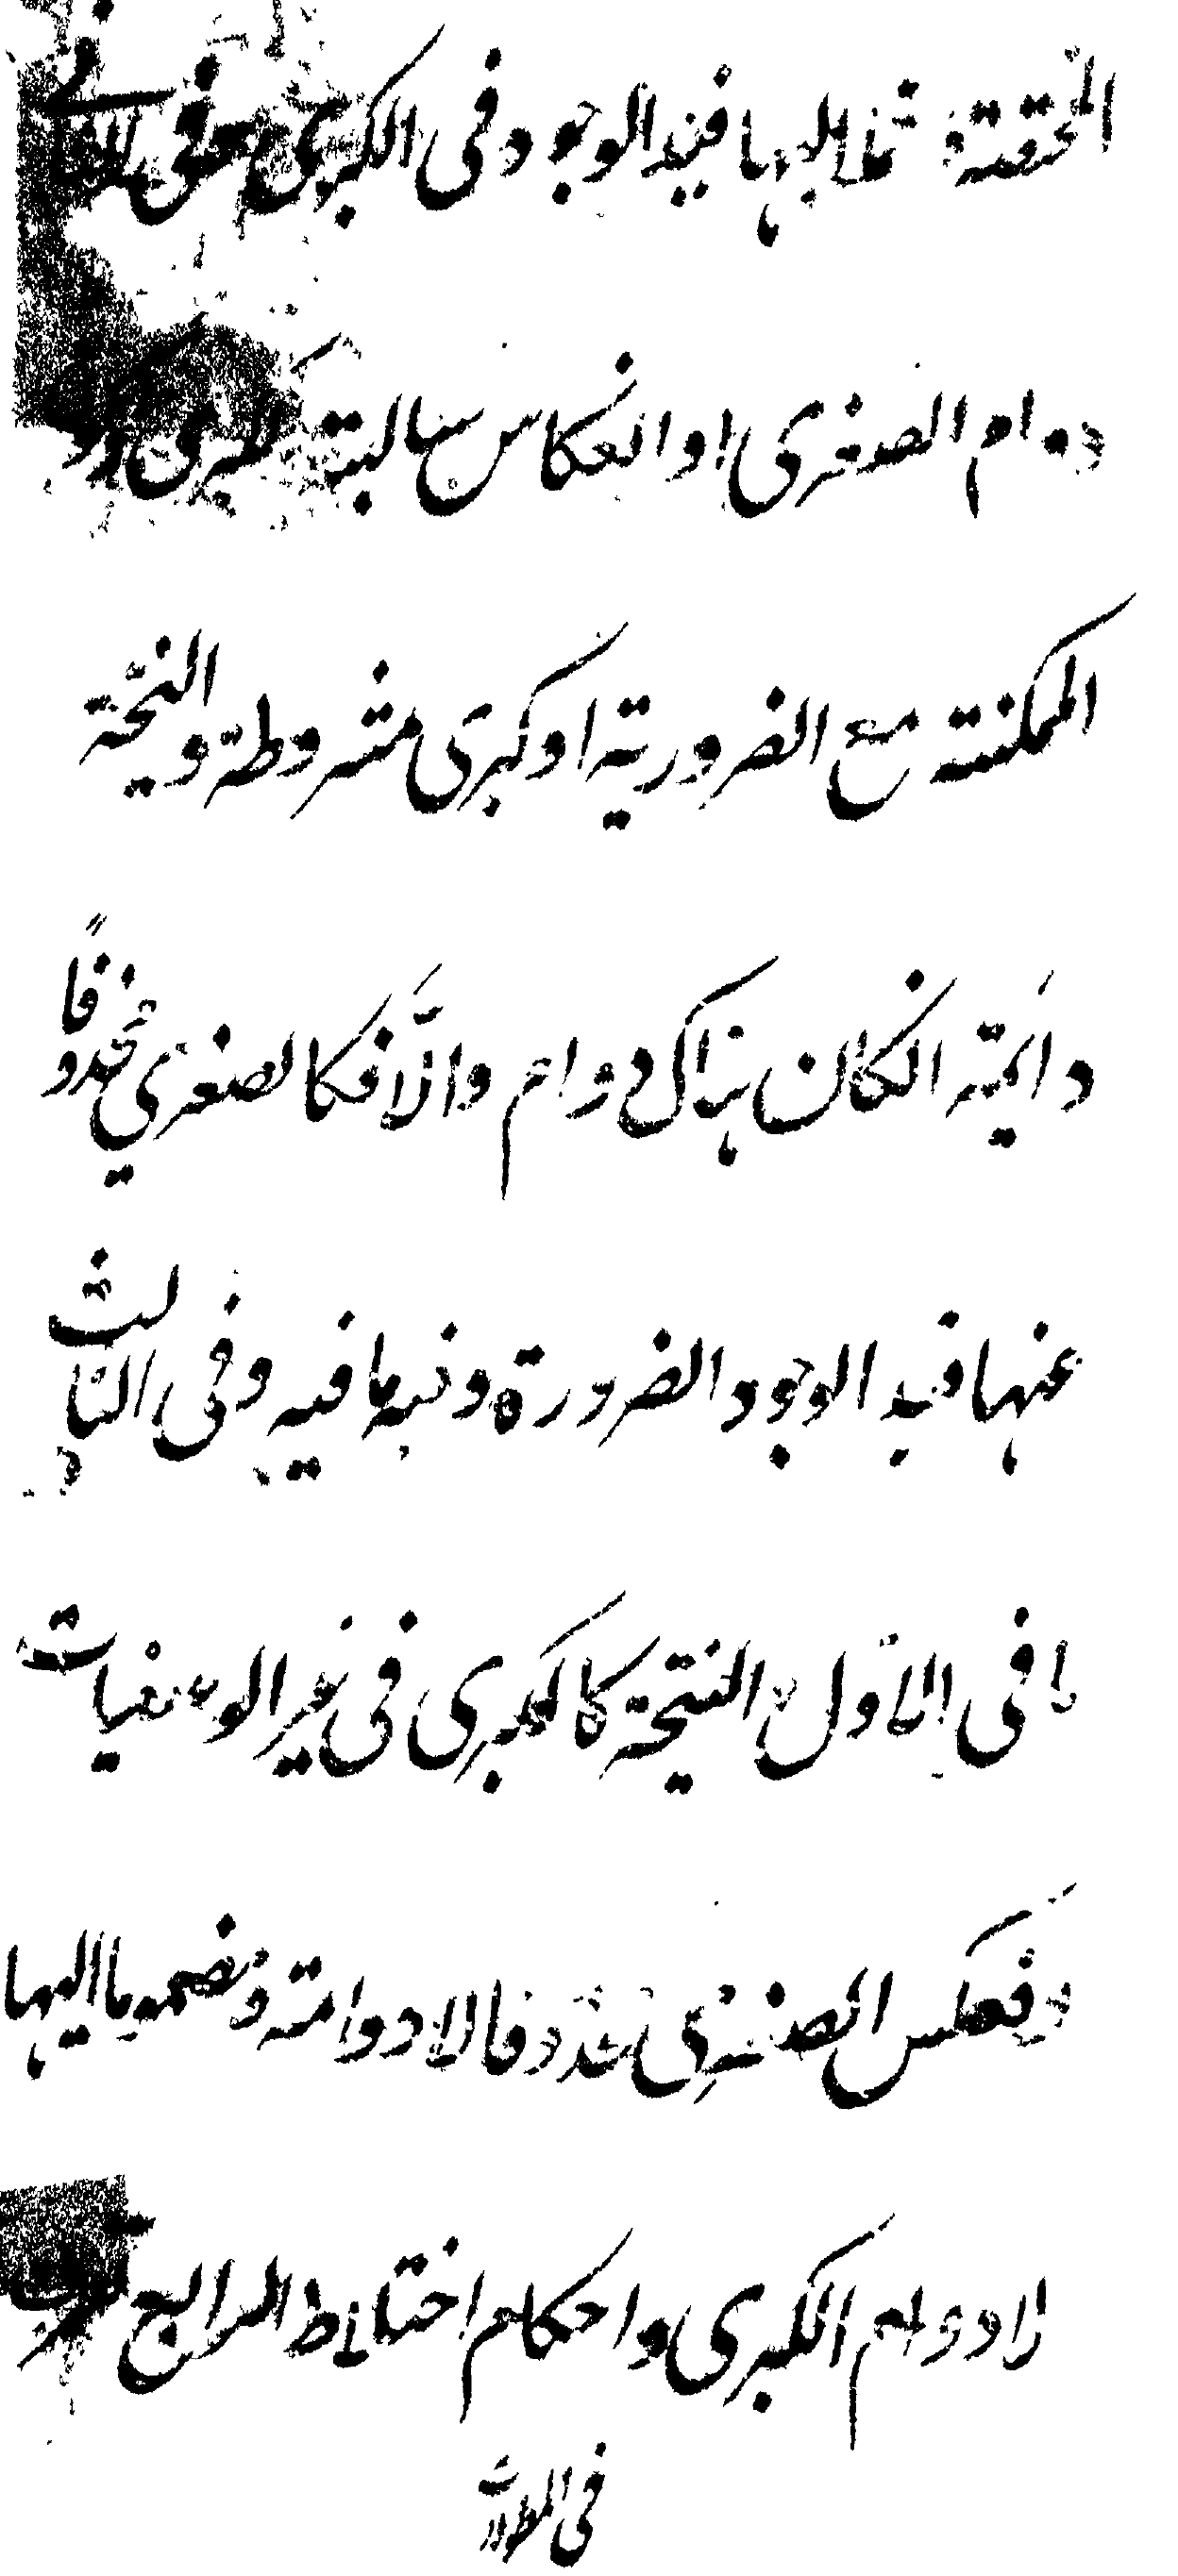 المختصة ثم اليها قيد الوجود في الكبرى وفي الثاني
دوام الصغرى او انعكاس سالبة الكبرى
الممكنة مع الضرورية او كبرى مشروطة والنتيجة
دائمة ان كان هناك دوام والا فكالصغرى محذوفا
عنها قيد الوجود والضرورة ونبه ما فيه وفي الثالث
ما في الاول النتيجة كالكبرى في غير الوصفيات
وفعكس الصغرى محذوفا لادوامة ونضمه ما اليها
لادوام الكبرى واحكام اختلاط الرابع
في المطولات